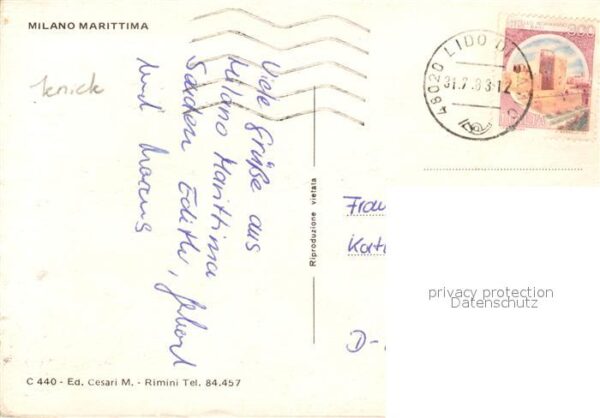 MILANO MARITTIMA
knick
Viele Grüße aus
Milano Marittima
senden Edith, Gebard
und Marius
Riproduzione vietata
48020 LIDO DI
31.7.83-12
Frau
Kart
D-
privacy protection
Datenschutz
C 440 - Ed. Cesari M. - Rimini Tel. 84.457